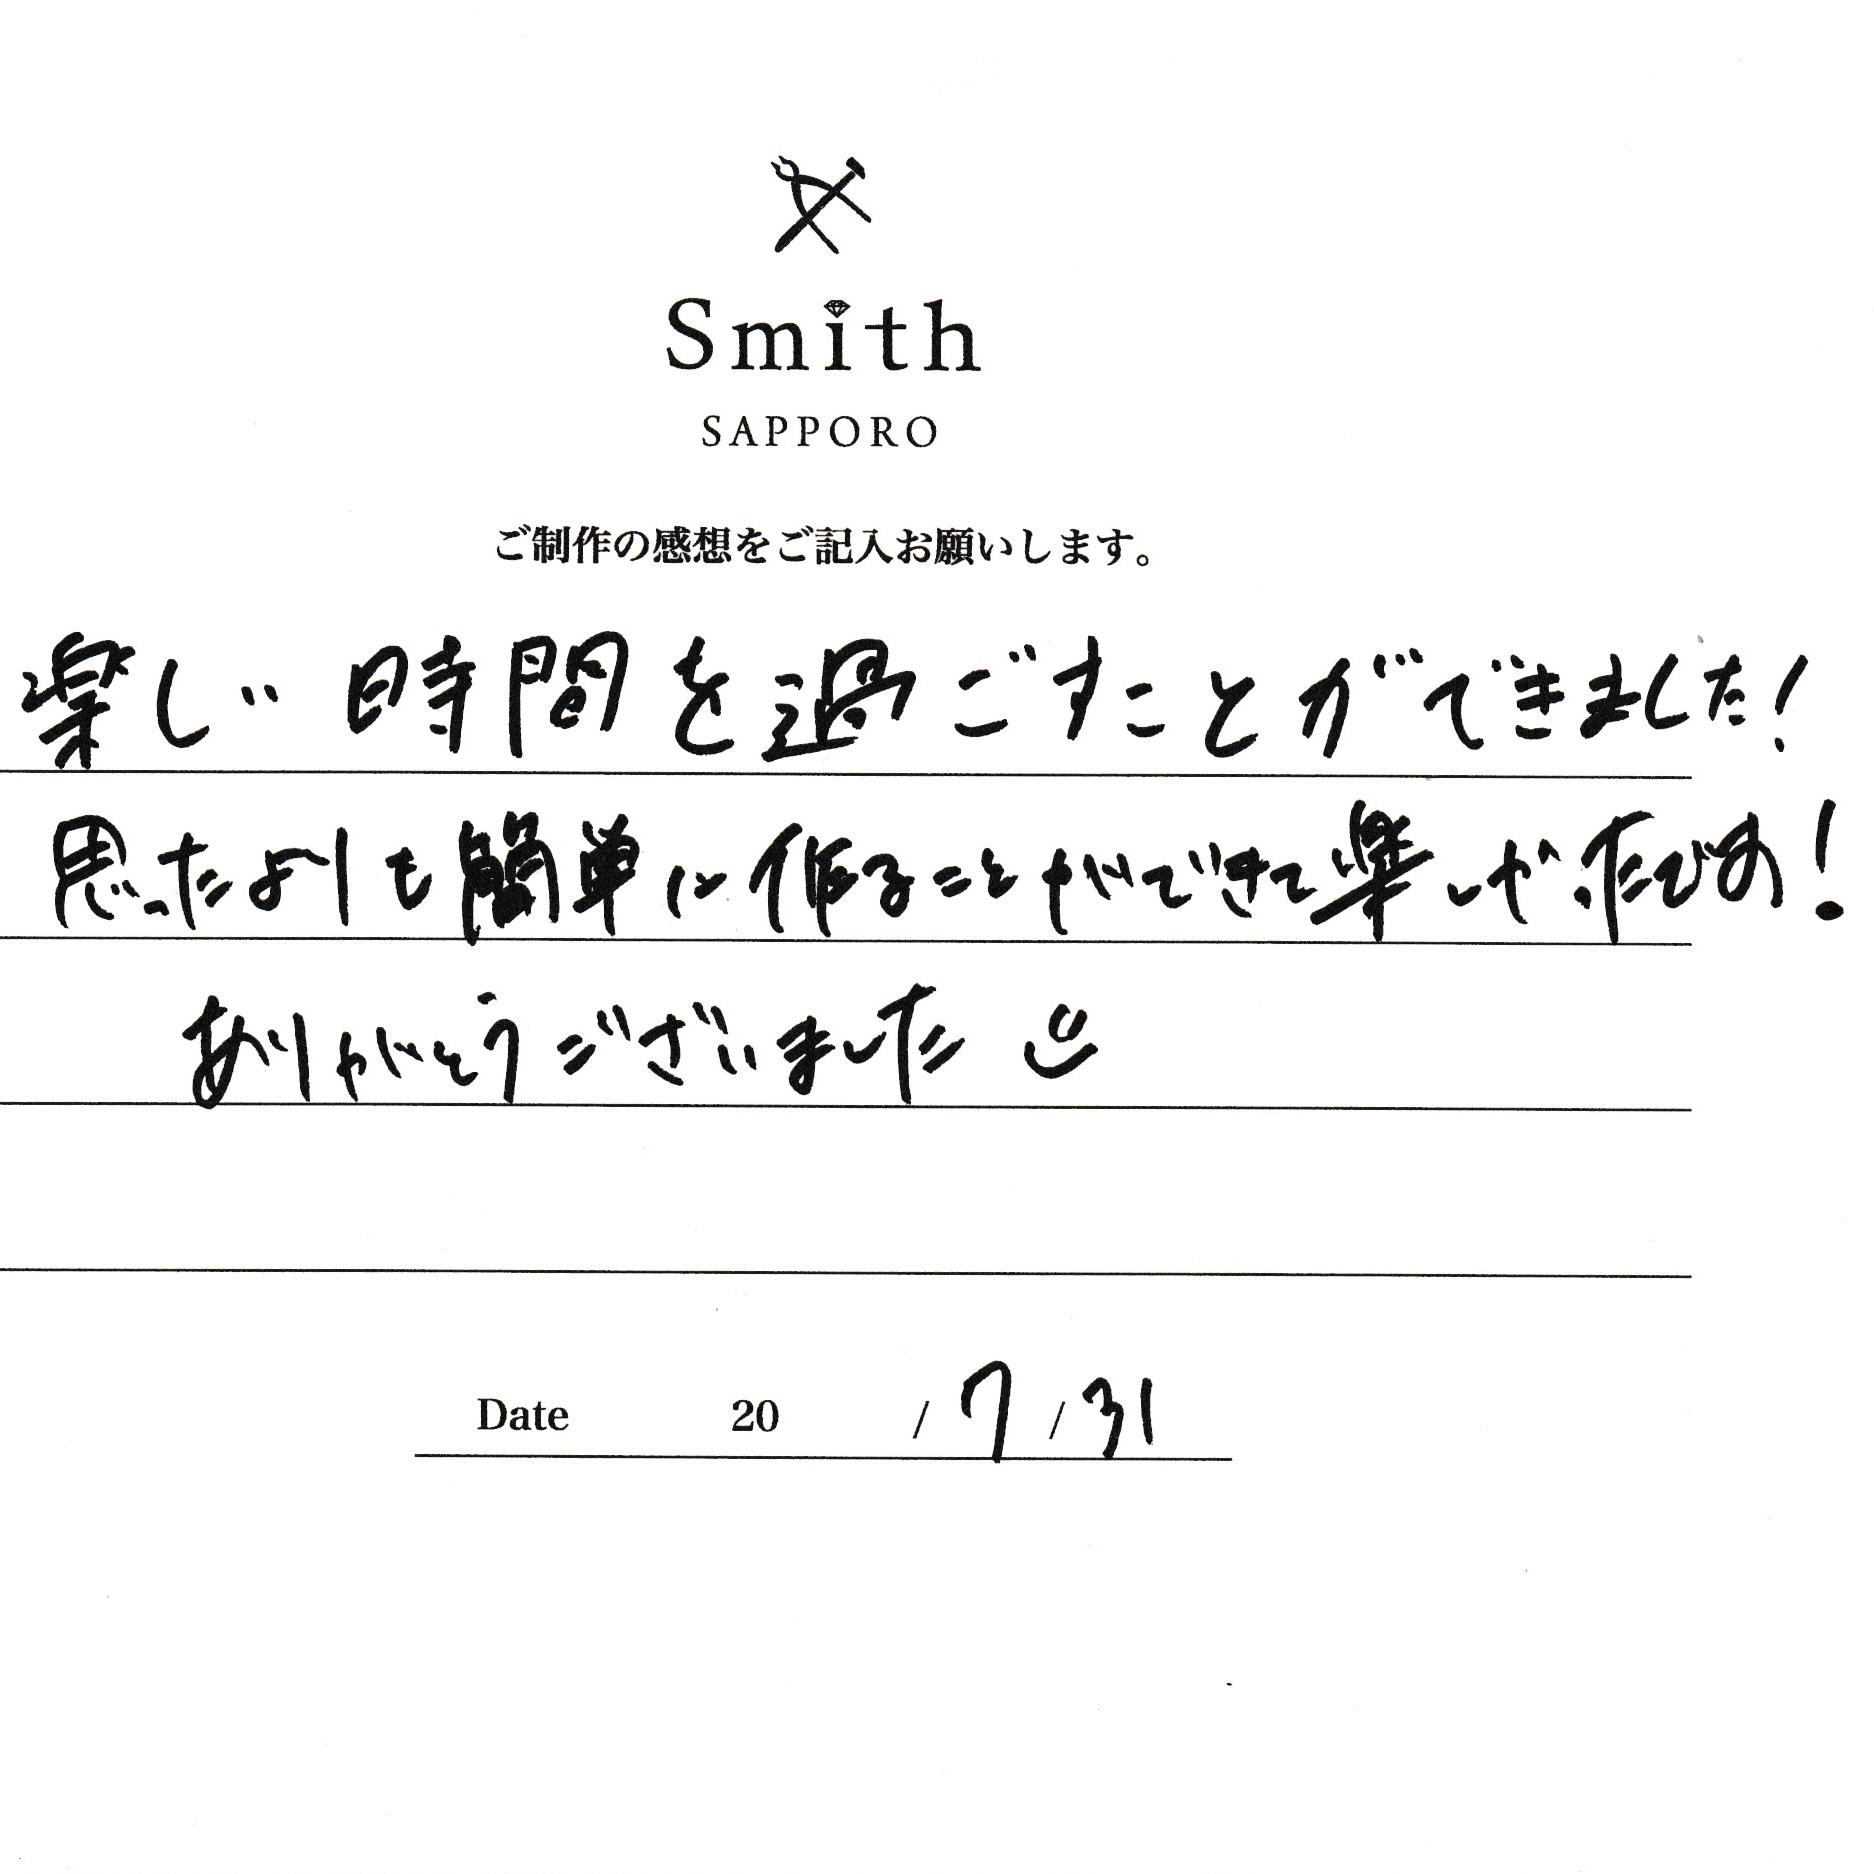 Smith
SAPPORO
ご制作の感想をご記入お願いします。
楽しい時間を過ごすことができました!
思ったよりも簡単に作ることができて楽しかったです!
ありがとうございました
Date 20 / 7 / 31